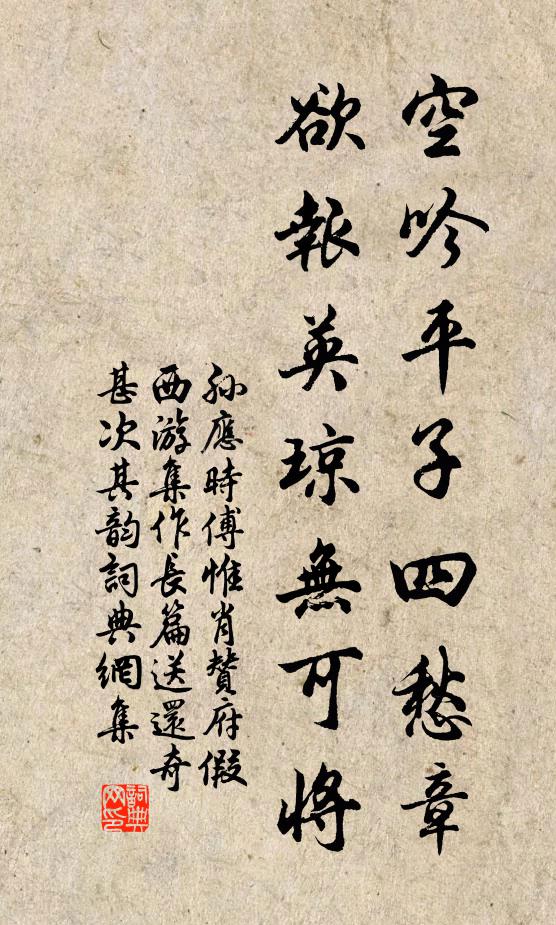 空吟平子四愁章
欲報英瓊無可將
孫應時傅惟肖贊府假
西游集作長篇送還奇
甚次其韵詞典網集
詞典網印